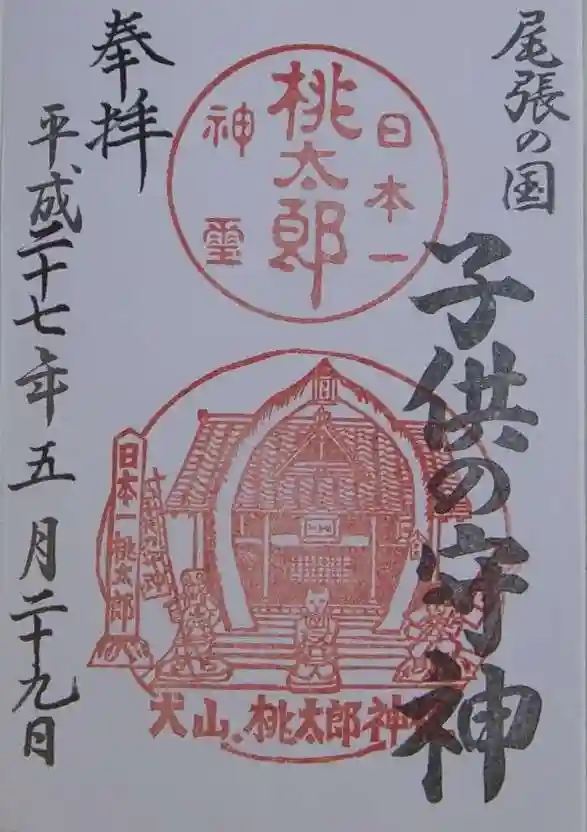 尾張の国
子供の守神
日本一
桃太郎
神璽
奉拝
平成二十七年五月二十九日
日本一桃太郎
犬山、桃太郎神